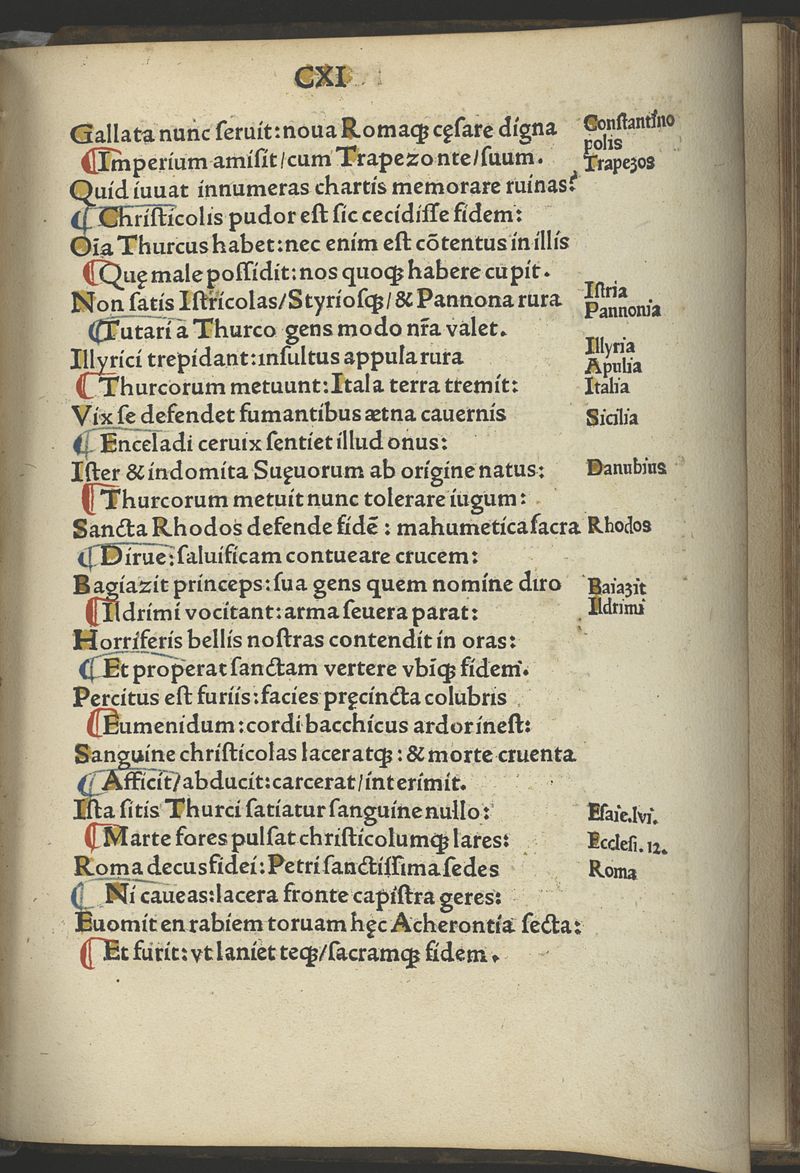 CXI
Gallata nunc ſeruit: noua Romaqꝫ cęſare digna Conſtantino
polis
¶Imperium amiſit/cum Trapezonte/ſuum. Trapeꝫos
Quid iuuat innumeras chartis memorare ruinas?
¶Chriſticolis pudor eſt ſic cecidiſſe fidem:
Oīa Thurcus habet: nec enim eſt cōtentus in illis
¶Quę male poſſidit: nos quoqꝫ habere cupit.
Non ſatis Iſtricolas/Styrioſqꝫ/& Pannona rura Iſtria
Pannonia
¶Tutari a Thurco gens modo nr̄a valet.
Illyrici trepidant: inſultus appula rura Illyria
Apulia
¶Thurcorum metuunt: Itala terra tremit: Italia
Vix ſe defendet fumantibus ætna cauernis Sicilia
¶Enceladi ceruix ſentiet illud onus:
Iſter & indomita Suęuorum ab origine natus: Danubius
¶Thurcorum metuit nunc tolerare iugum:
Sancta Rhodos defende fidē: mahumetica ſacra Rhodos
¶Dirue: ſaluificam contueare crucem:
Bagiazit princeps: ſua gens quem nomine diro Baiaꝫit
¶Ildrimi vocitant: arma ſeuera parat: Ildrimi
Horriferis bellis noſtras contendit in oras:
¶Et properat ſanctam vertere vbiqꝫ fidem.
Percitus eſt furiis: facies pręcincta colubris
¶Eumenidum: cordi bacchicus ardor ineſt:
Sanguine chriſticolas laceratqꝫ: & morte cruenta
¶Afficit/abducit: carcerat/interimit.
Iſta ſitis Thurci ſatiatur ſanguine nullo: Eſaie.lvi.
¶Marte fores pulſat chriſticolumqꝫ lares: Eccleſi. 12.
Roma decus fidei: Petri ſanctiſſima ſedes Roma
¶Ni caueas: lacera fronte capiſtra geres:
Euomit en rabiem toruam hęc Acherontia ſecta:
¶Et furit: vt laniet teqꝫ/ſacramqꝫ fidem.